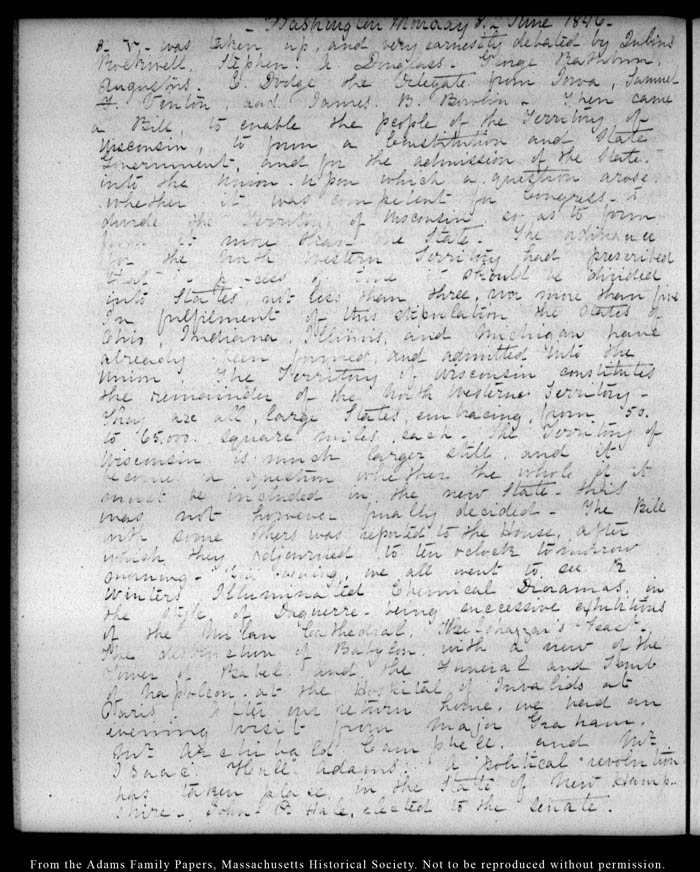 - Washington Monday 8. June 1846 -
was taken up, and very earnestly debated by Julius
Rockwell, Stephen A. Douglass - George Rathbun,
Augustus C. Dodge the Delegate from Iowa, Samuel
F. Vinton, and James B. Bowlin - Then came
a Bill, to enable the people of the Territory of
Wisconsin, to form a Constitution and State
Government, and for the admission of the State,
into the Union. upon which a question arose
whether it was competent for Congress to
divide the Territory of Wisconsin, so as to form
from it more than one State. The ordinance
for the North Western Territory had prescribed
that it should be divided
into States, not less than three, nor more than five
In fulfilment of this stipulation the States of
Ohio, Indiana, Illinois, and Michigan have
already been formed, and admitted into the
Union. The Territory of Wisconsin constitutes
the remainder of the North Western Territory -
They are all, large States, embracing, from 50.
to 65.000. square miles, each - The Territory of
Wisconsin is much larger still, and it
became a question whether the whole of it
must be included in the new State - this
was not however finally decided - The Bill
with some others was reported to the House, after
which they adjourned to ten o'clock tomorrow
morning - This Evening, we all went to see R
Winters Illuminated Chemical Dioramas, in
the style of Daguerre - being successive exhibitions
of the Milan Cathedral, Belshazzar's Feast -
The destruction of Babylon with a view of the
Tower of Babel and the Funeral and Tomb
of Napoleon. at the Hospital of Invalids at
Paris. After our return home, we had an
evening visit from Major Graham,
Mr. Archibald Campbell, and Mr.
Isaac Hull Adams. A political revolution
has taken place in the State of New Hamp-
shire - John P. Hale, elected to the Senate.
From the Adams Family Papers, Massachusetts Historical Society. Not to be reproduced without permission.